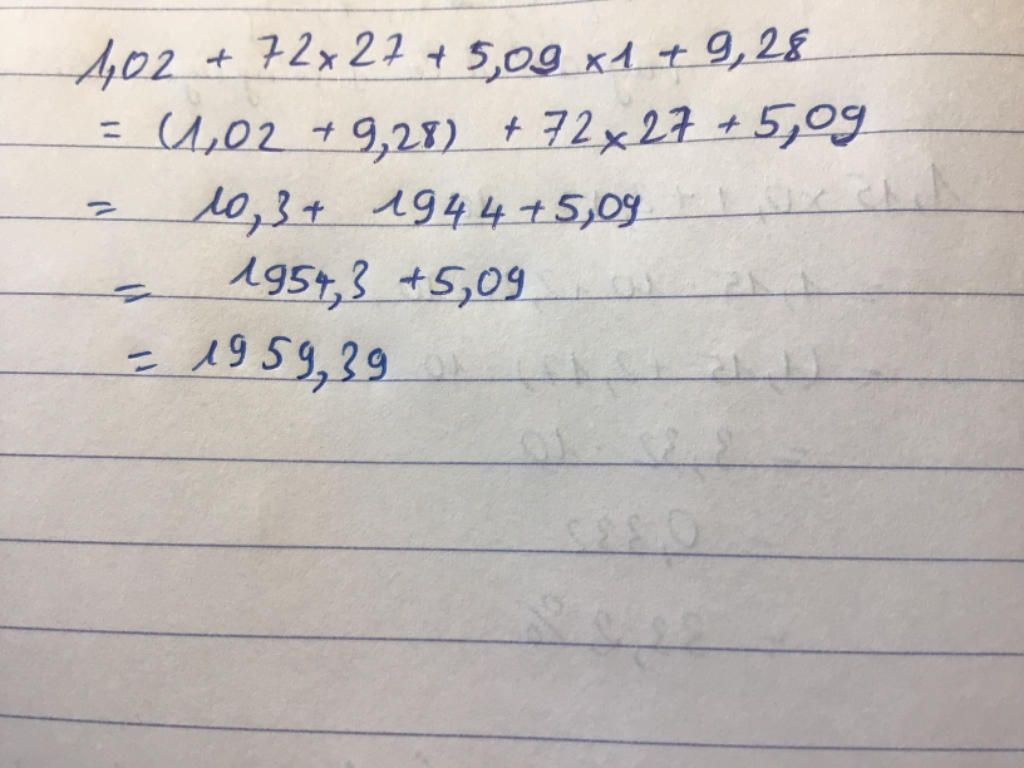 1,02 + 72 x 27 + 5,09 x 1 + 9,28
= (1,02 + 9,28) + 72 x 27 + 5,09
= 10,3 + 1944 + 5,09
= 1954,3 + 5,09
= 1959,39